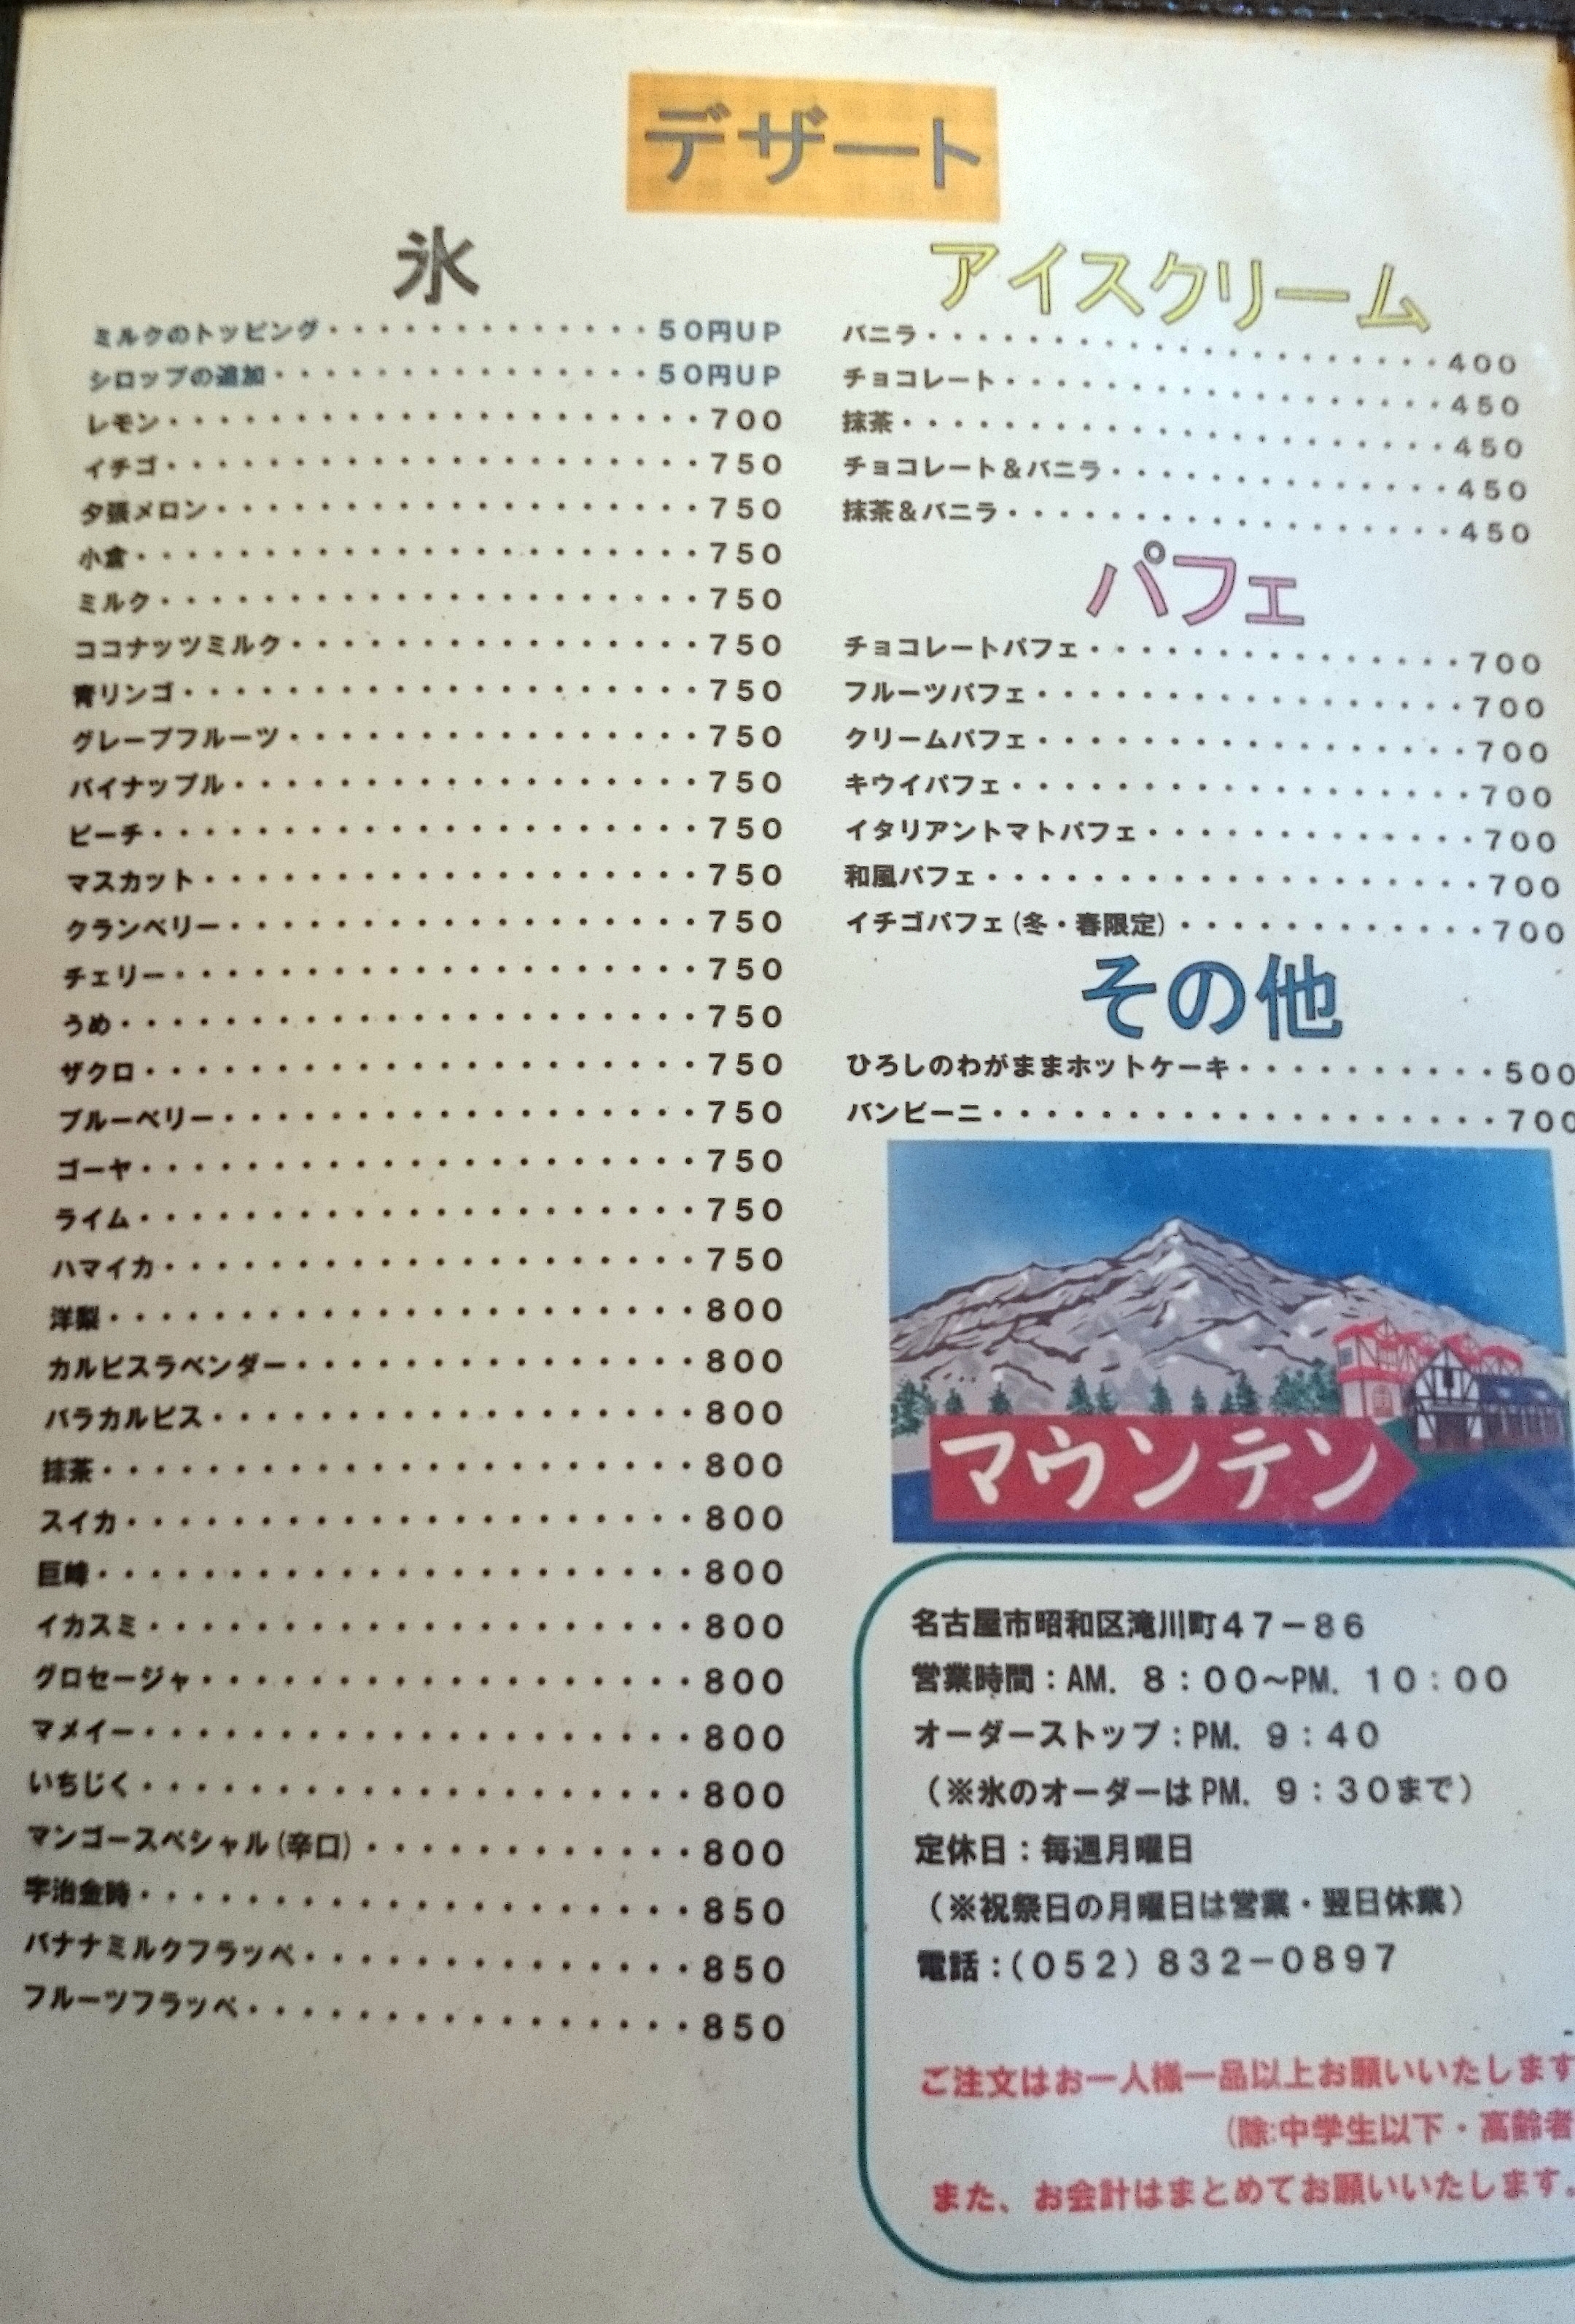 デザート
氷
ミルクのトッピング・・・・・・・・・・・・・50円UP
シロップの追加・・・・・・・・・・・・・・・50円UP
レモン・・・・・・・・・・・・・・・・・・・・・700
イチゴ・・・・・・・・・・・・・・・・・・・・・750
夕張メロン・・・・・・・・・・・・・・・・・・・750
小倉・・・・・・・・・・・・・・・・・・・・・・750
ミルク・・・・・・・・・・・・・・・・・・・・・750
ココナッツミルク・・・・・・・・・・・・・・・・750
青リンゴ・・・・・・・・・・・・・・・・・・・・750
グレープフルーツ・・・・・・・・・・・・・・・・750
パイナップル・・・・・・・・・・・・・・・・・・750
ピーチ・・・・・・・・・・・・・・・・・・・・・750
マスカット・・・・・・・・・・・・・・・・・・・750
クランベリー・・・・・・・・・・・・・・・・・・750
チェリー・・・・・・・・・・・・・・・・・・・・750
うめ・・・・・・・・・・・・・・・・・・・・・・750
ザクロ・・・・・・・・・・・・・・・・・・・・・750
ブルーベリー・・・・・・・・・・・・・・・・・・750
ゴーヤ・・・・・・・・・・・・・・・・・・・・・750
ライム・・・・・・・・・・・・・・・・・・・・・750
ハマイカ・・・・・・・・・・・・・・・・・・・・750
洋梨・・・・・・・・・・・・・・・・・・・・・・800
カルピスラベンダー・・・・・・・・・・・・・・・800
バラカルピス・・・・・・・・・・・・・・・・・・800
抹茶・・・・・・・・・・・・・・・・・・・・・・800
スイカ・・・・・・・・・・・・・・・・・・・・・800
巨峰・・・・・・・・・・・・・・・・・・・・・・800
イカスミ・・・・・・・・・・・・・・・・・・・・800
グロセージャ・・・・・・・・・・・・・・・・・・800
マメイー・・・・・・・・・・・・・・・・・・・・800
いちじく・・・・・・・・・・・・・・・・・・・・800
マンゴースペシャル(辛口)・・・・・・・・・・・・800
宇治金時・・・・・・・・・・・・・・・・・・・・850
バナナミルクフラッペ・・・・・・・・・・・・・・850
フルーツフラッペ・・・・・・・・・・・・・・・・850
アイスクリーム
バニラ・・・・・・・・・・・・・・・・・・・・400
チョコレート・・・・・・・・・・・・・・・・・450
抹茶・・・・・・・・・・・・・・・・・・・・・450
チョコレート&バニラ・・・・・・・・・・・・・450
抹茶&バニラ・・・・・・・・・・・・・・・・・450
パフェ
チョコレートパフェ・・・・・・・・・・・・・・700
フルーツパフェ・・・・・・・・・・・・・・・・700
クリームパフェ・・・・・・・・・・・・・・・・700
キウイパフェ・・・・・・・・・・・・・・・・・700
イタリアントマトパフェ・・・・・・・・・・・・700
和風パフェ・・・・・・・・・・・・・・・・・・700
イチゴパフェ(冬・春限定)・・・・・・・・・・・700
その他
ひろしのわがままホットケーキ・・・・・・・・・・500
バンビーニ・・・・・・・・・・・・・・・・・・・700
マウンテン
名古屋市昭和区滝川町47-86
営業時間:AM. 8:00~PM. 10:00
オーダーストップ:PM. 9:40
(※氷のオーダーはPM. 9:30まで)
定休日:毎週月曜日
(※祝祭日の月曜日は営業・翌日休業)
電話:(052)832-0897
ご注文はお一人様一品以上お願いいたします
(除:中学生以下・高齢者
また、お会計はまとめてお願いいたします。